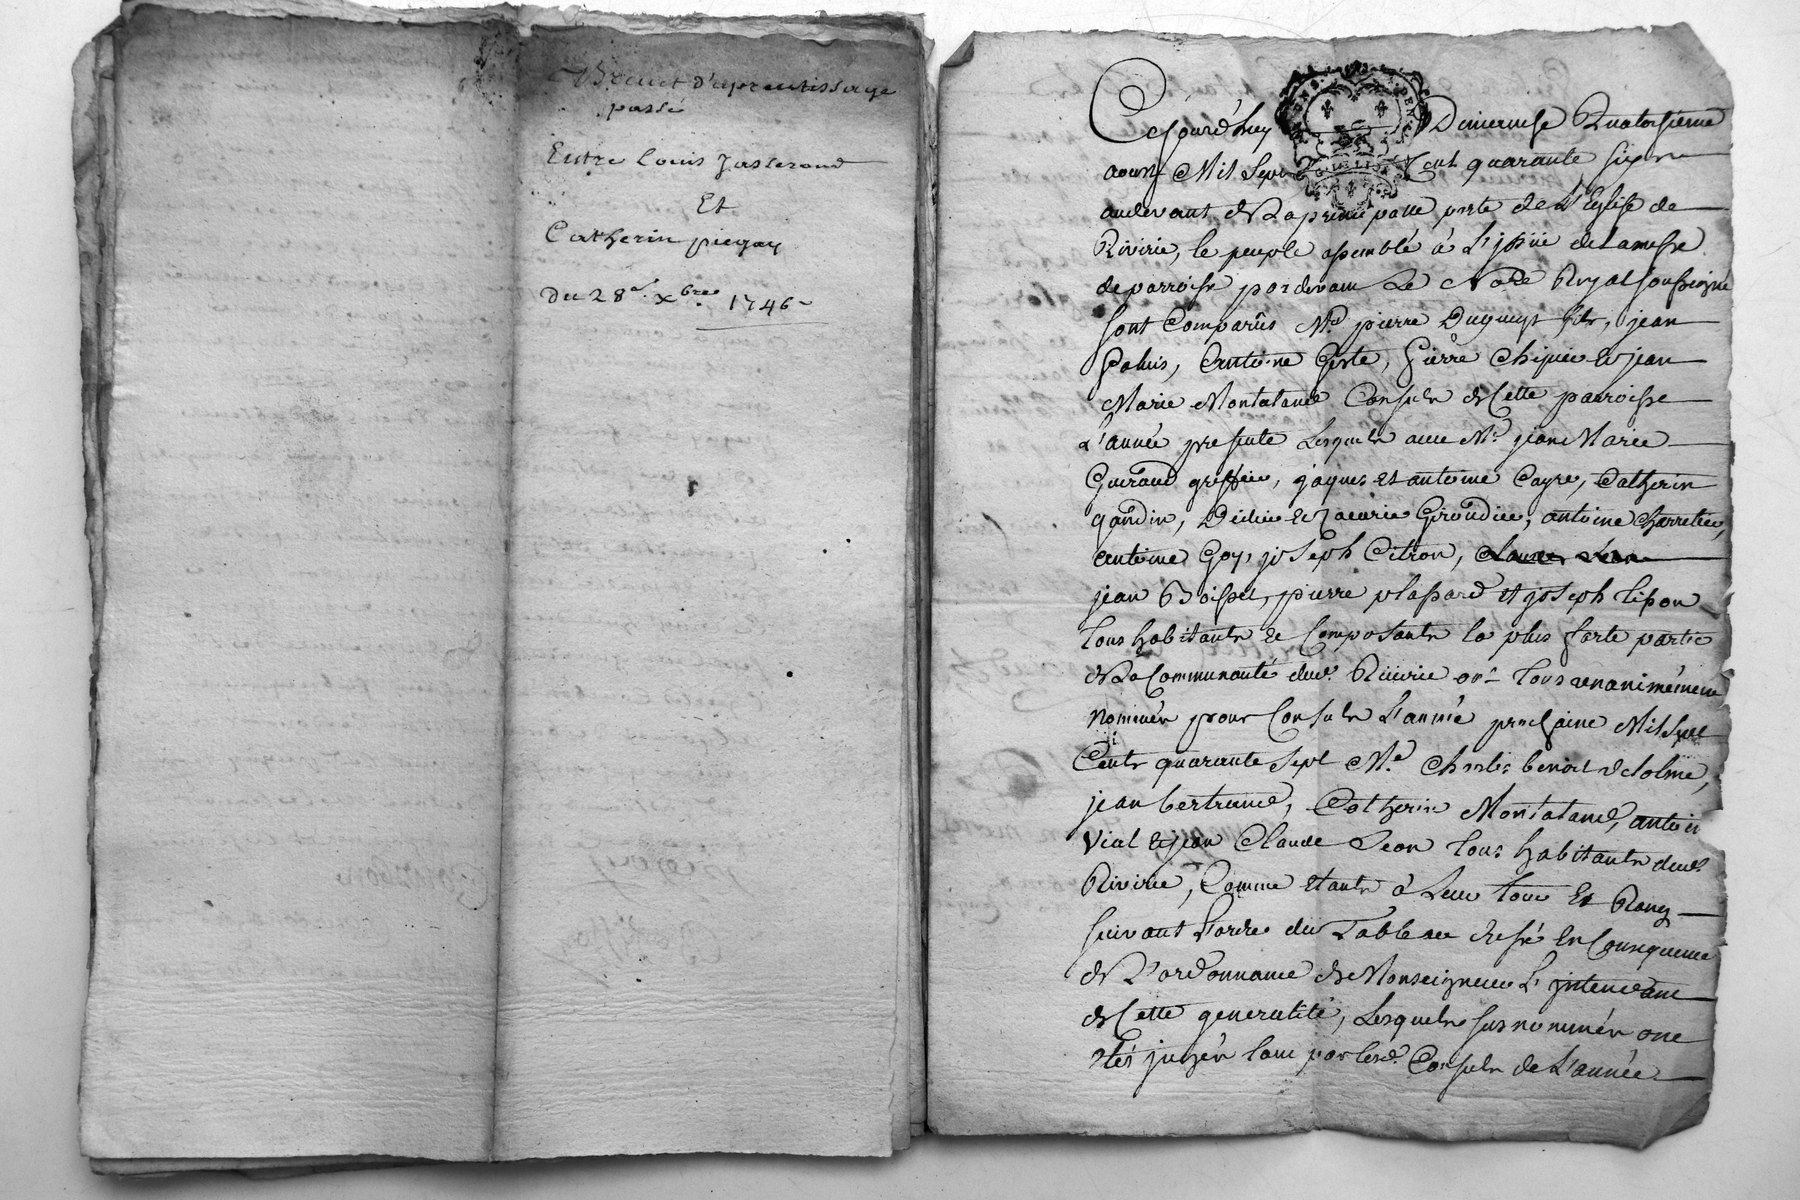 Brevet d'aprentissage
passé
Entre Louis Jasserand
Et
Catherin piegay
Du 28e. Xbre. 1746
Cejourd'huy Dimenche Quatorsieme
aoust Mil Sept Cent quarante six
audevant de La principalle porte de L'Eglise de
Riverie, le peuple assemblé à L'issüe de La messe
de parroisse pardevant Le No.re Royal soussigné
sont Comparûs Mr. pierre fils, jean
Antoine pierre et jean
Marie Montaland Consuls de Cette parroisse
L'année presente Lesquels avec Mr. jean Marie
Guiraud greffier, jaques et antoine Cayre, Catherin
gaudin, antoine Charretier,
antoine Goy, joseph Citron,
jean Boisset, pierre et joseph
Tous habitants et Composants la plus forte partie
de La Communauté dud. Riverie ont Tous unanimement
nommés pour Consuls L'année prochaine Mil Sept
Cents quarante sept Mr. Charles benoit
jean bertrand, Catherin Montaland, antoine
Vial et jean Claude Leon Tous habitants dud.
Riverie, Comme etants à Leur Tour Et Rang
suivant L'ordre du Tableau dressé En Consequence
de L'ordonnance de Monseigneur L'intendant
de Cette generalité, Lesquels susnommés ont
etés par lesd. Consuls de L'année